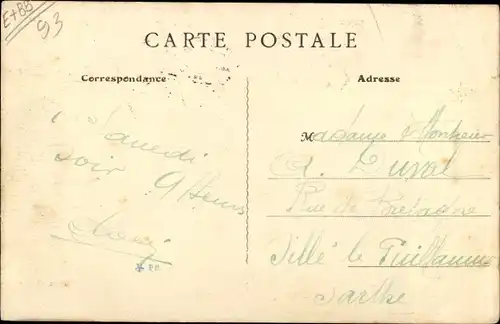 E+BB
93
CARTE POSTALE
Correspondance
Adresse
Samedi
soir 9 Heures
Madame & Monsieur
A. Duval
Rue de Bretagne
Sillé le Guillaume
Sarthe